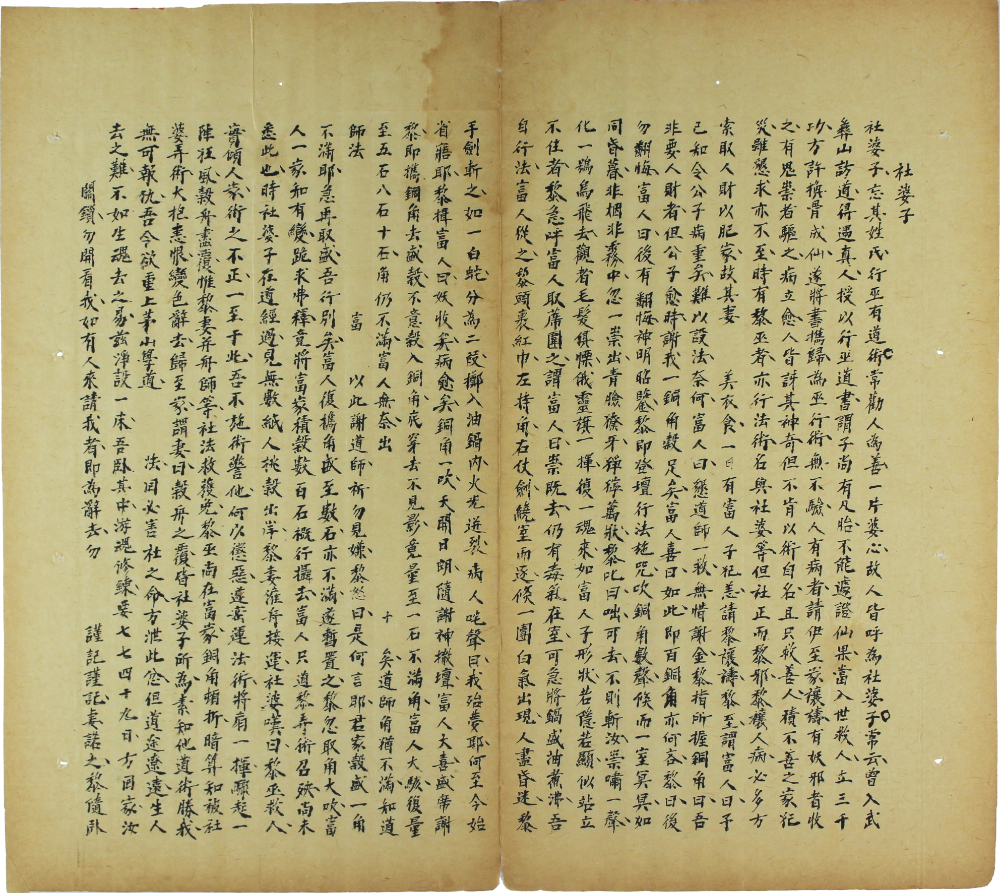 社婆子
社婆子忘其姓氏行巫有道術常勸人為善一片婆心故人皆呼為社婆子常云曾入武
彝山訪道得遇真人授以行巫道書謂子尚有凡胎不能遽證仙果當入世救人立三千
功方許換骨成仙遂將書攜歸為巫行術無不驗人有病者請伊至家禳禱有妖邪者收
之有鬼祟者驅之病立愈人皆訝其神奇但不肯以術自名且只救善人積不善之家犯
災雖懇求亦不至時有黎巫者亦行法術名與社婆等但社正而黎邪黎禳人病必多方
索取人財以肥家故其妻 美衣食一日有富人子犯恙請黎禳禱黎至謂富人曰子
已知令公子病重矣難以設法奈何富人曰懇道師一救無惜謝金黎指所握銅角曰吾
非要人財者但公子愈時謝我一銅角穀足矣富人喜曰如此即百銅角亦何吝黎曰後
勿翻悔富人曰後有翻悔神明昭鑒黎即登壇行法施咒吹銅角數聲倏而一室冥冥如
同昏暮非烟非霧中忽一祟出青臉獠牙猙獰萬狀黎叱曰咄可去不則斬汝祟嘯一聲
化一鴉鳥飛去觀者毛髮俱慄俄靈旗一揮復一魂來如富人子形狀若隱若顯似站立
不住者黎急呼富人取蓆圍之謂富人曰祟既去仍有毒氣在室可急將鍋盛油煮沸吾
自行法富人從之黎頭裹紅巾左持角右仗劍繞室而逐倏一團白氣出現人盡昏迷黎
手劍斬之如一白蛇分為二段擲入油鍋內火光迸裂病人咤聲曰我殆夢耶何至今始
省寤耶黎揖富人曰妖收矣病愈矣銅角一吹天開日朗隨謝神撤壇富人大喜盛席謝
黎即攜銅角去盛穀不意穀入銅角底穿去不見影竟量至一石不滿角富人大駭復量
至五石八石十石角仍不滿富人無奈出 十 矣道師角猶不滿知道
師法 富 以此謝道師祈勿見嫌黎怒曰是何言耶君家穀盛一角
不滿耶急再取盛吾行別矣富人復攜角盛至數石亦不滿遂暫置之黎忽取角大吹富
人一家如有變跪求弗釋竟將富家積穀數百石概行攝去富人只道黎弄術召殃尚未
悉此也時社婆子在道經過見無數紙人挑穀出岸黎妻維舟接運社婆嘆曰黎巫救人
實傾人家術之不正一至于此吾不施術警他何以懲惡遂密運法術將扇一揮驟起一
陣狂風穀舟盡覆惟黎妻并舟師等社法救獲免黎巫尚在富家銅角頻折暗算知被社
婆弄術大抱恚恨變色辭去歸至家謂妻曰穀舟之覆皆社婆子所為素知他道術勝我
無可報仇吾今欲重上茅山學道 法回必害社之命方泄此忿但道途遼遠生人
去之難不如生魂去之易茲淨設一床吾臥其中游魂修鍊要七七四十九日方回家汝
關鎖勿開看我如有人來請我者即為辭去勿 謹記謹記妻諾之黎隨臥